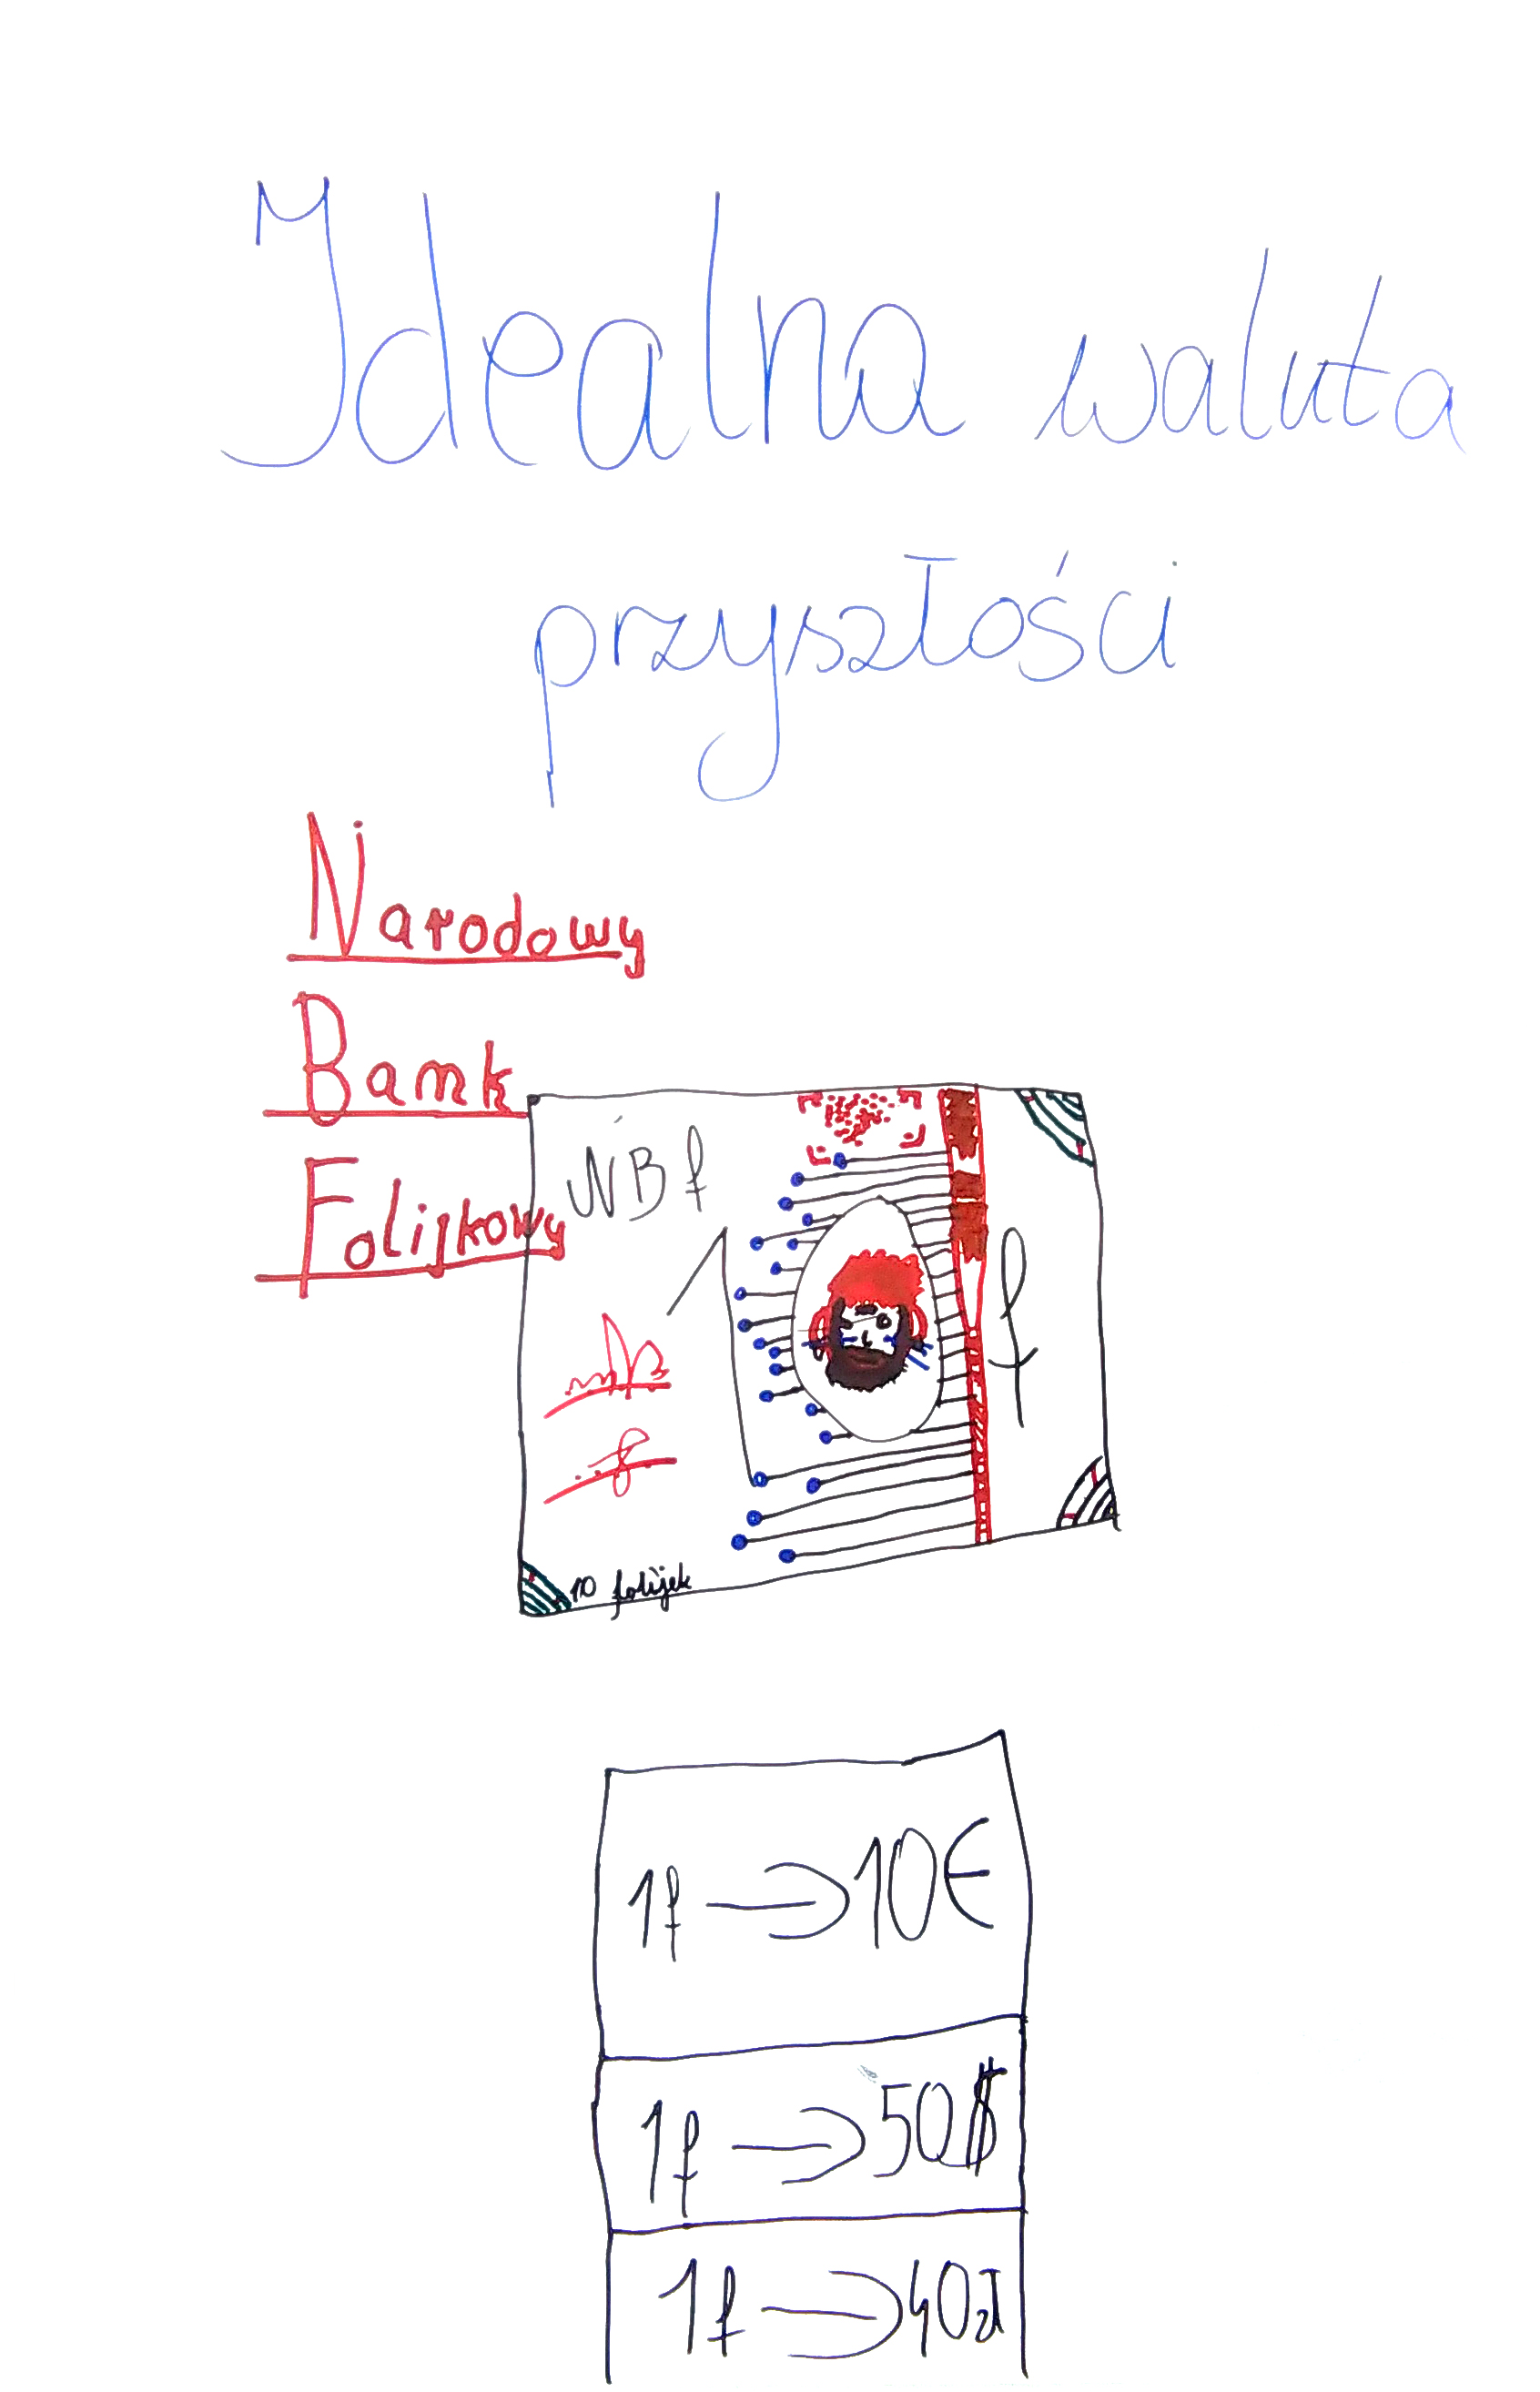 Idealna waluta
przyszłości
Narodowy
Bank
Folijkowy
NBf
1
f
10 folijek
1f → 10€
1f → 50$
1f → 40zł